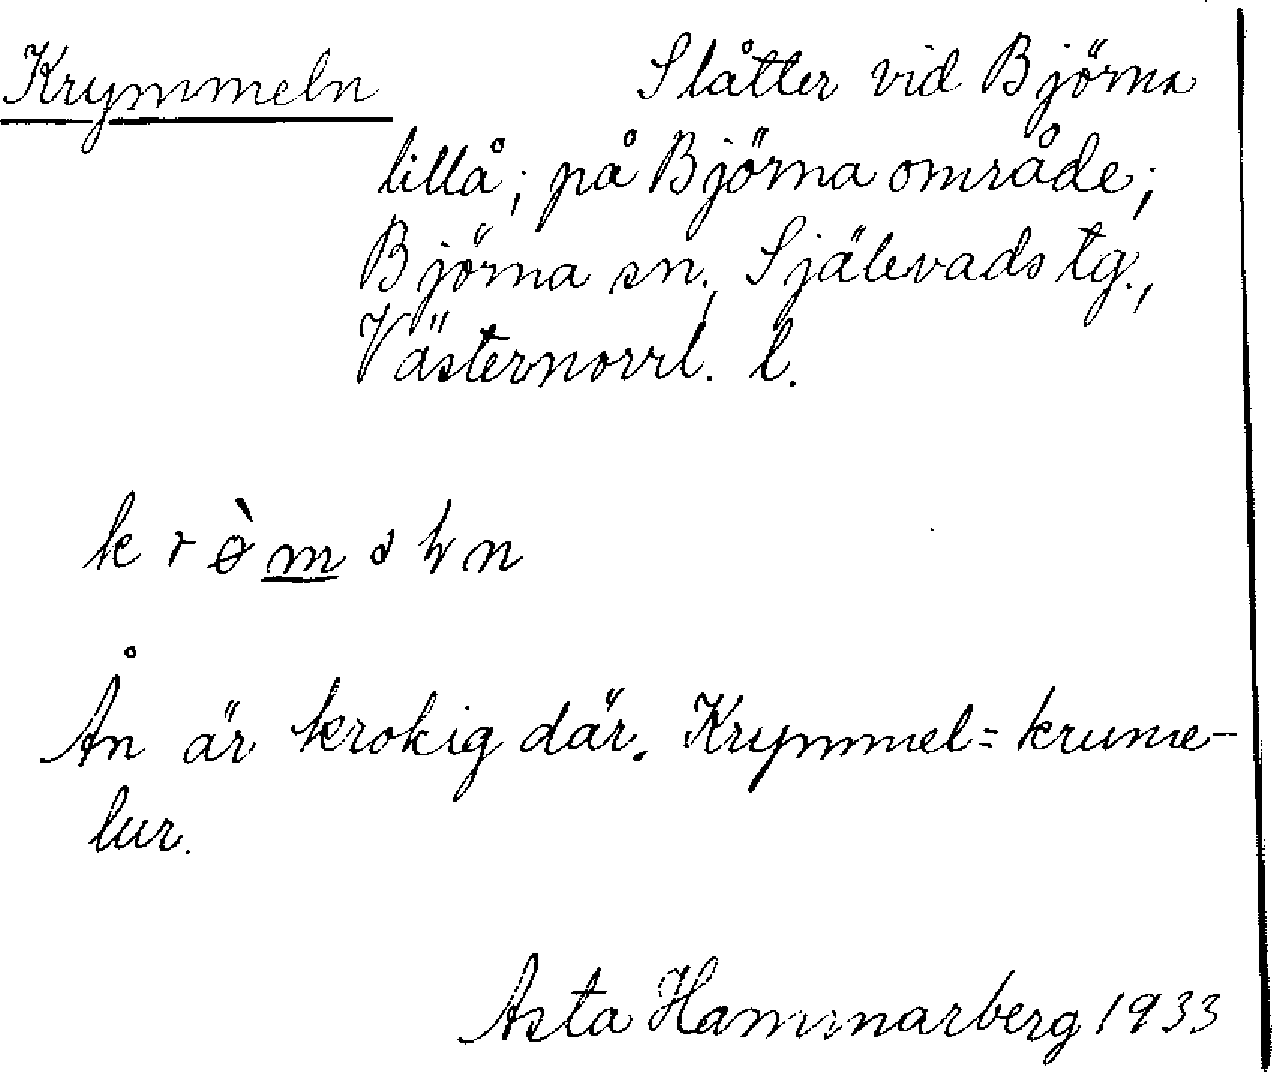 Krymmeln Slåtter vid Björna
lillå; på Björna område;
Björna sn., Själevads tg.,
Västernorrl. l.
k r ɵ̀ m ə ɬ n
Ån är krokig där. Krymmel = krume-
lur.
Asta Hammarberg 1933